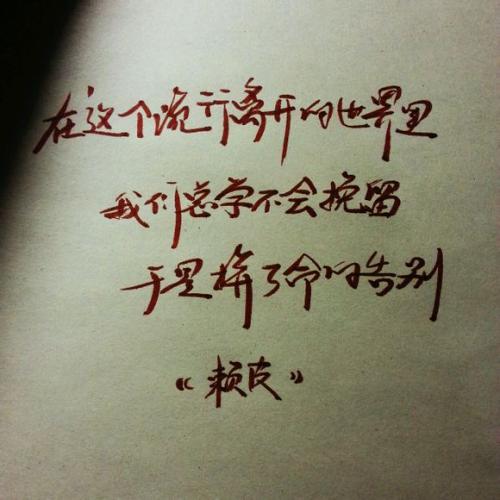 在这个流行离开的世界里
我们总学不会挽留
于是拼了命的告别
《赖皮》